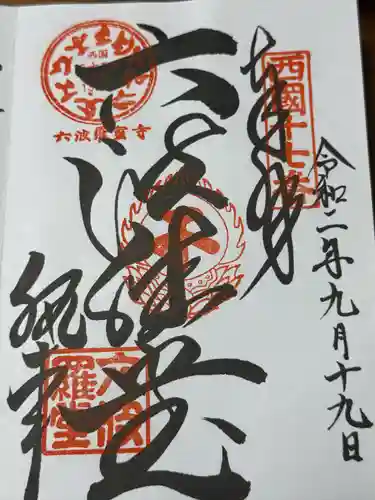 奉拝
西國十七番
令和二年九月十九日
六波羅堂
西国
六波羅蜜寺
六波羅堂